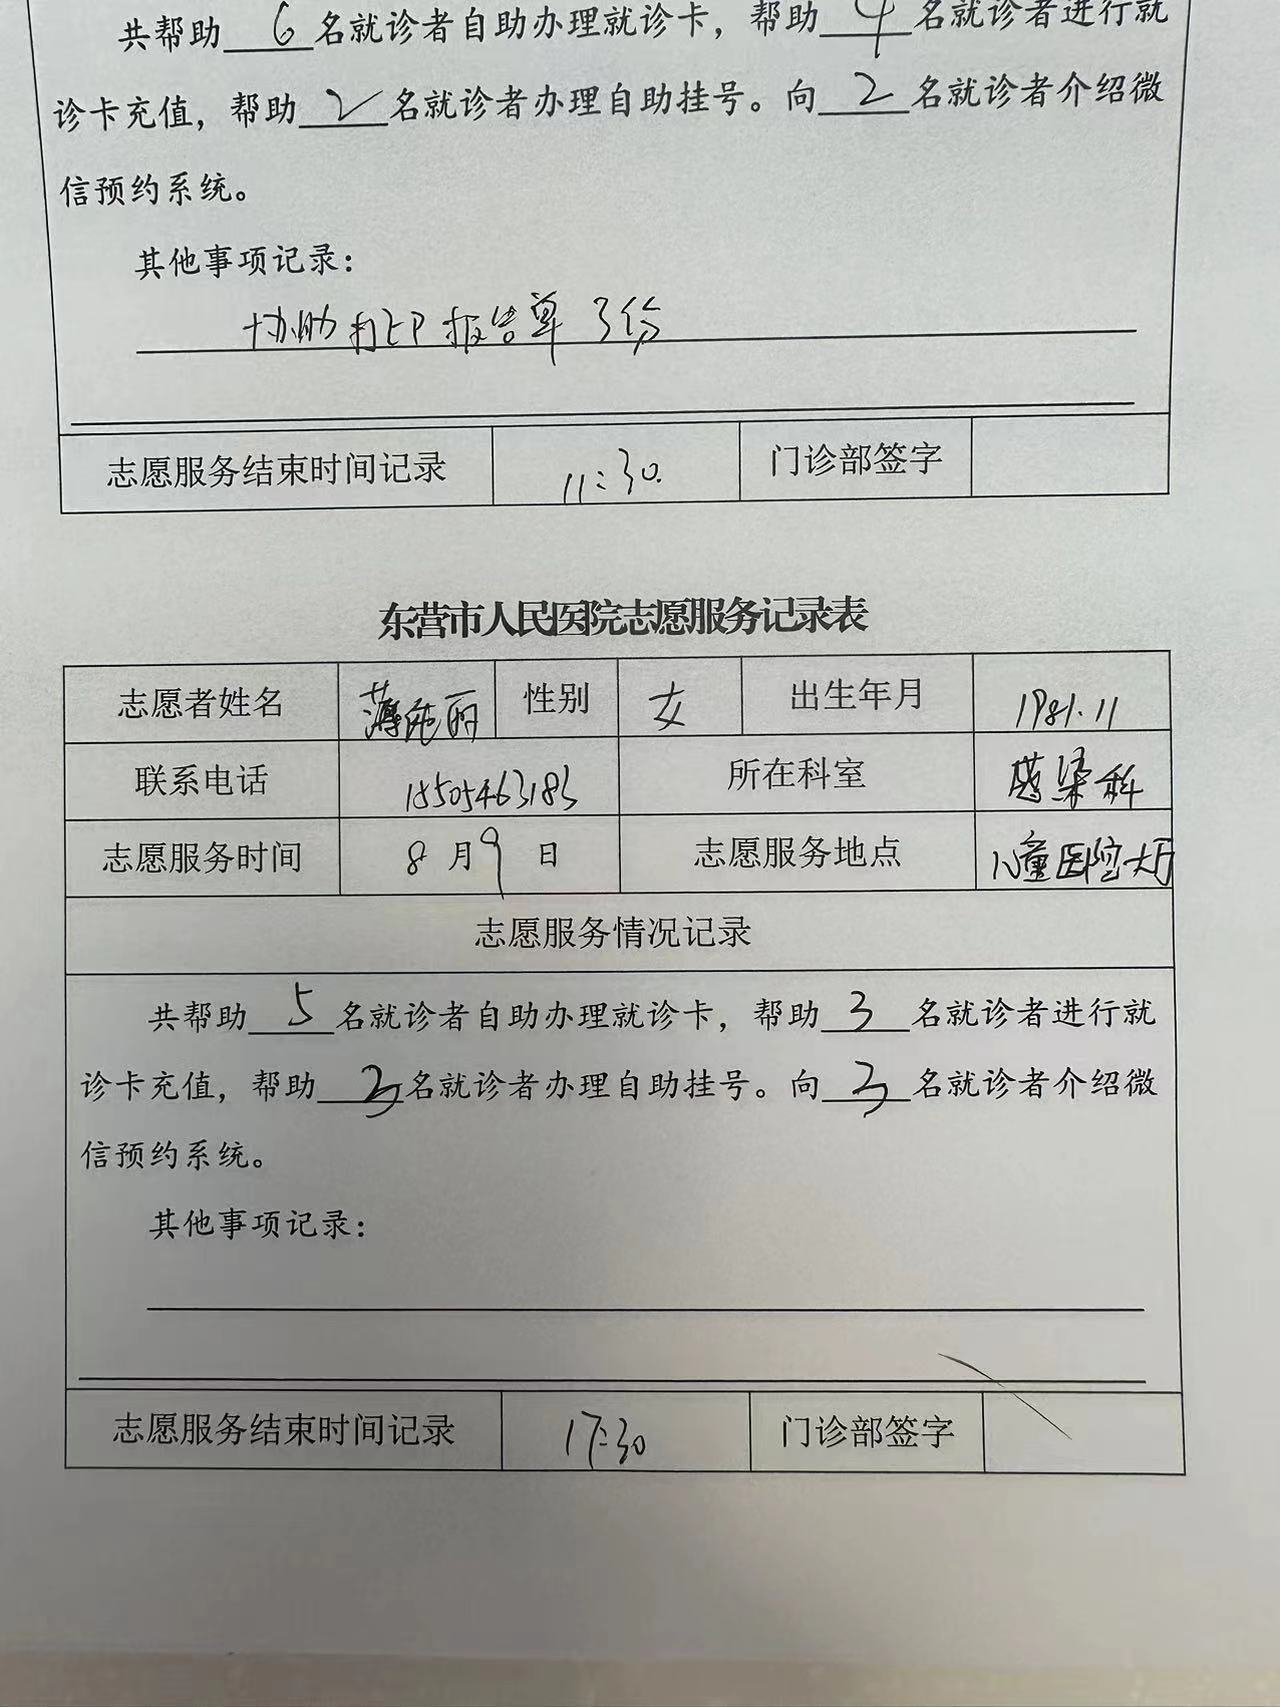 共帮助 6 名就诊者自助办理就诊卡，帮助 4 名就诊者进行就
诊卡充值，帮助 2 名就诊者办理自助挂号。向 2 名就诊者介绍微
信预约系统。
其他事项记录：
协助打印报告单3份
志愿服务结束时间记录 11:30. 门诊部签字
东营市人民医院志愿服务记录表
志愿者姓名 薄艳丽 性别 女 出生年月 1981.11
联系电话 15505463183 所在科室 感染科
志愿服务时间 8 月 9 日 志愿服务地点 儿童医院大厅
志愿服务情况记录
共帮助 5 名就诊者自助办理就诊卡，帮助 3 名就诊者进行就
诊卡充值，帮助 3 名就诊者办理自助挂号。向 3 名就诊者介绍微
信预约系统。
其他事项记录：
志愿服务结束时间记录 17:30 门诊部签字